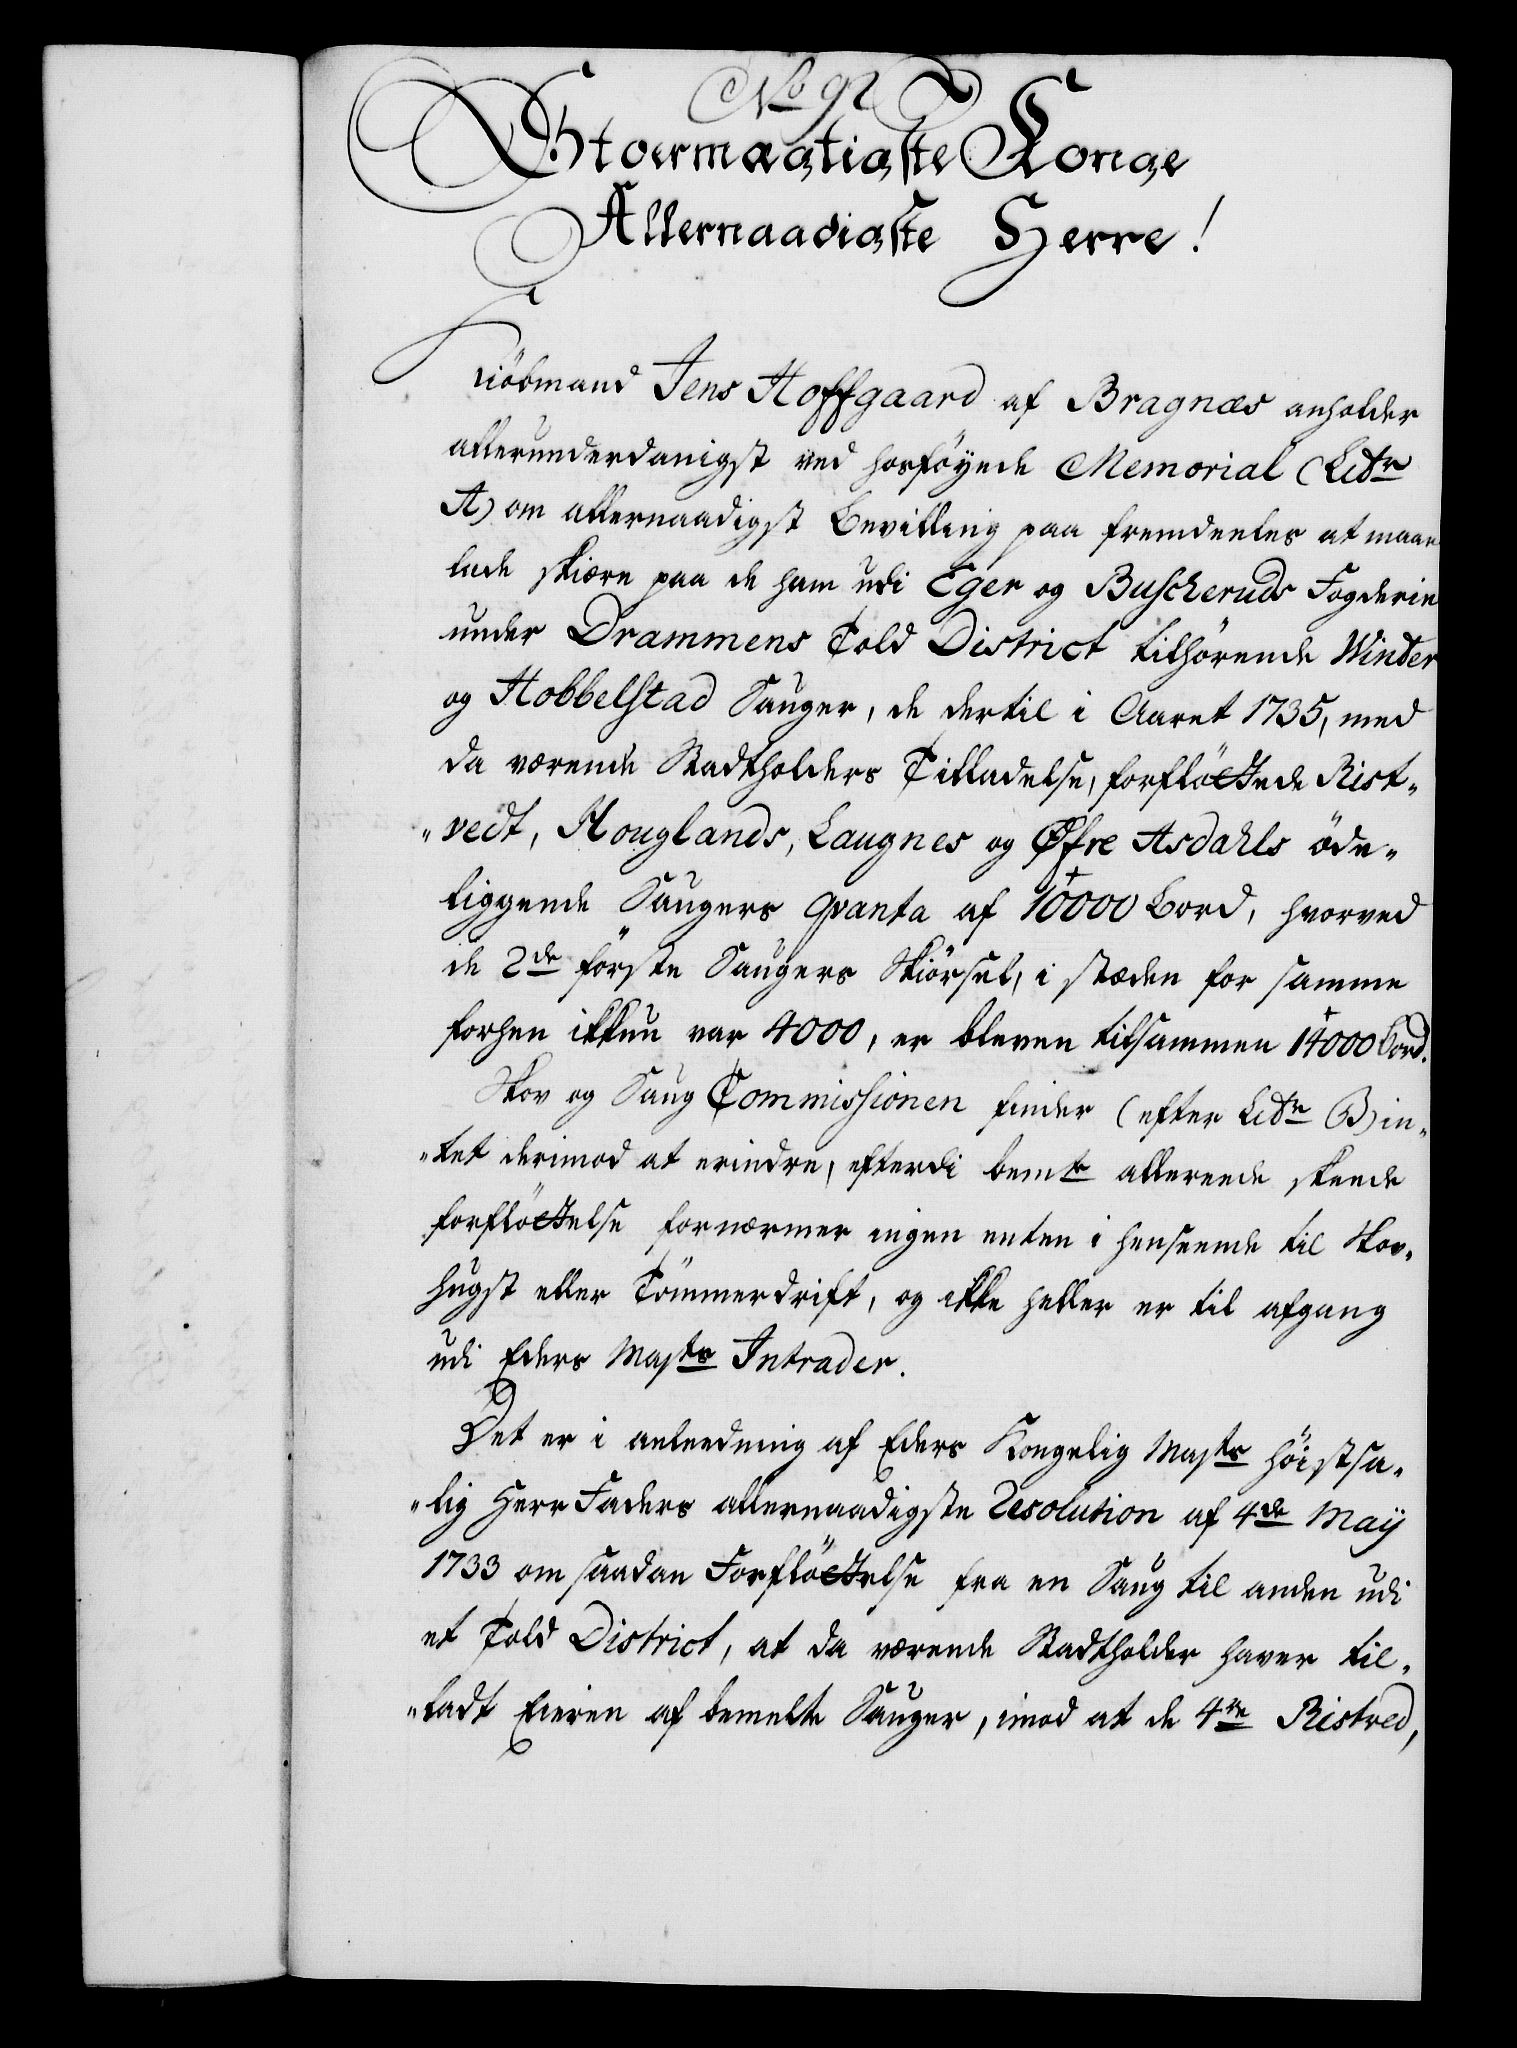 No 92
Stoermægtigste Konge
Allernaadigste Herre!
Kiöbmand Jens Hoffgaard af Bragnæs anholder
allerunderdanigst ved hosföyede Memorial (Litr
A) om allernaadigst Bevilling paa fremdeeles at maae
lade skiære paa de ham udi Eger og Buscheruds Fogderie
under Drammens Told District tilhörende Winter
og Hobbelstad Sauger, de dertil i Aaret 1735, med
da værende Stadtholders Tilladelse, forflöttede Rist-
vedt, Houglands, Laugnes og Øfre Asdahls öde-
liggende Saugers qvanta af 10000 Bord, hvorved
de 2de förste Saugers Skiörsel, i stæden for samme
forhen ikkun var 4000, er bleven tilsammen 14000 Bord.
Skov og Saug Commissionen finder (efter Litr B) in-
tet derimod at erindre, efterdi bemte allereede skeede
forflöttelse fornærmer ingen enten i henseende til Skov-
hugst eller Tömmerdrift, og ikke heller er til afgang
udi Eders Majts Intrader.
Det er i anleedning af Eders Kongelig Majts Höistsa-
lig Herr Faders allernaadigste Resolution af 4de May
1733 om saadan Forflöttelse fra en Saug til anden udi
et Told District, at da værende Stadtholder haver til-
ladt Eieren af bemelte Sauger, imod at de 4re Ristved,